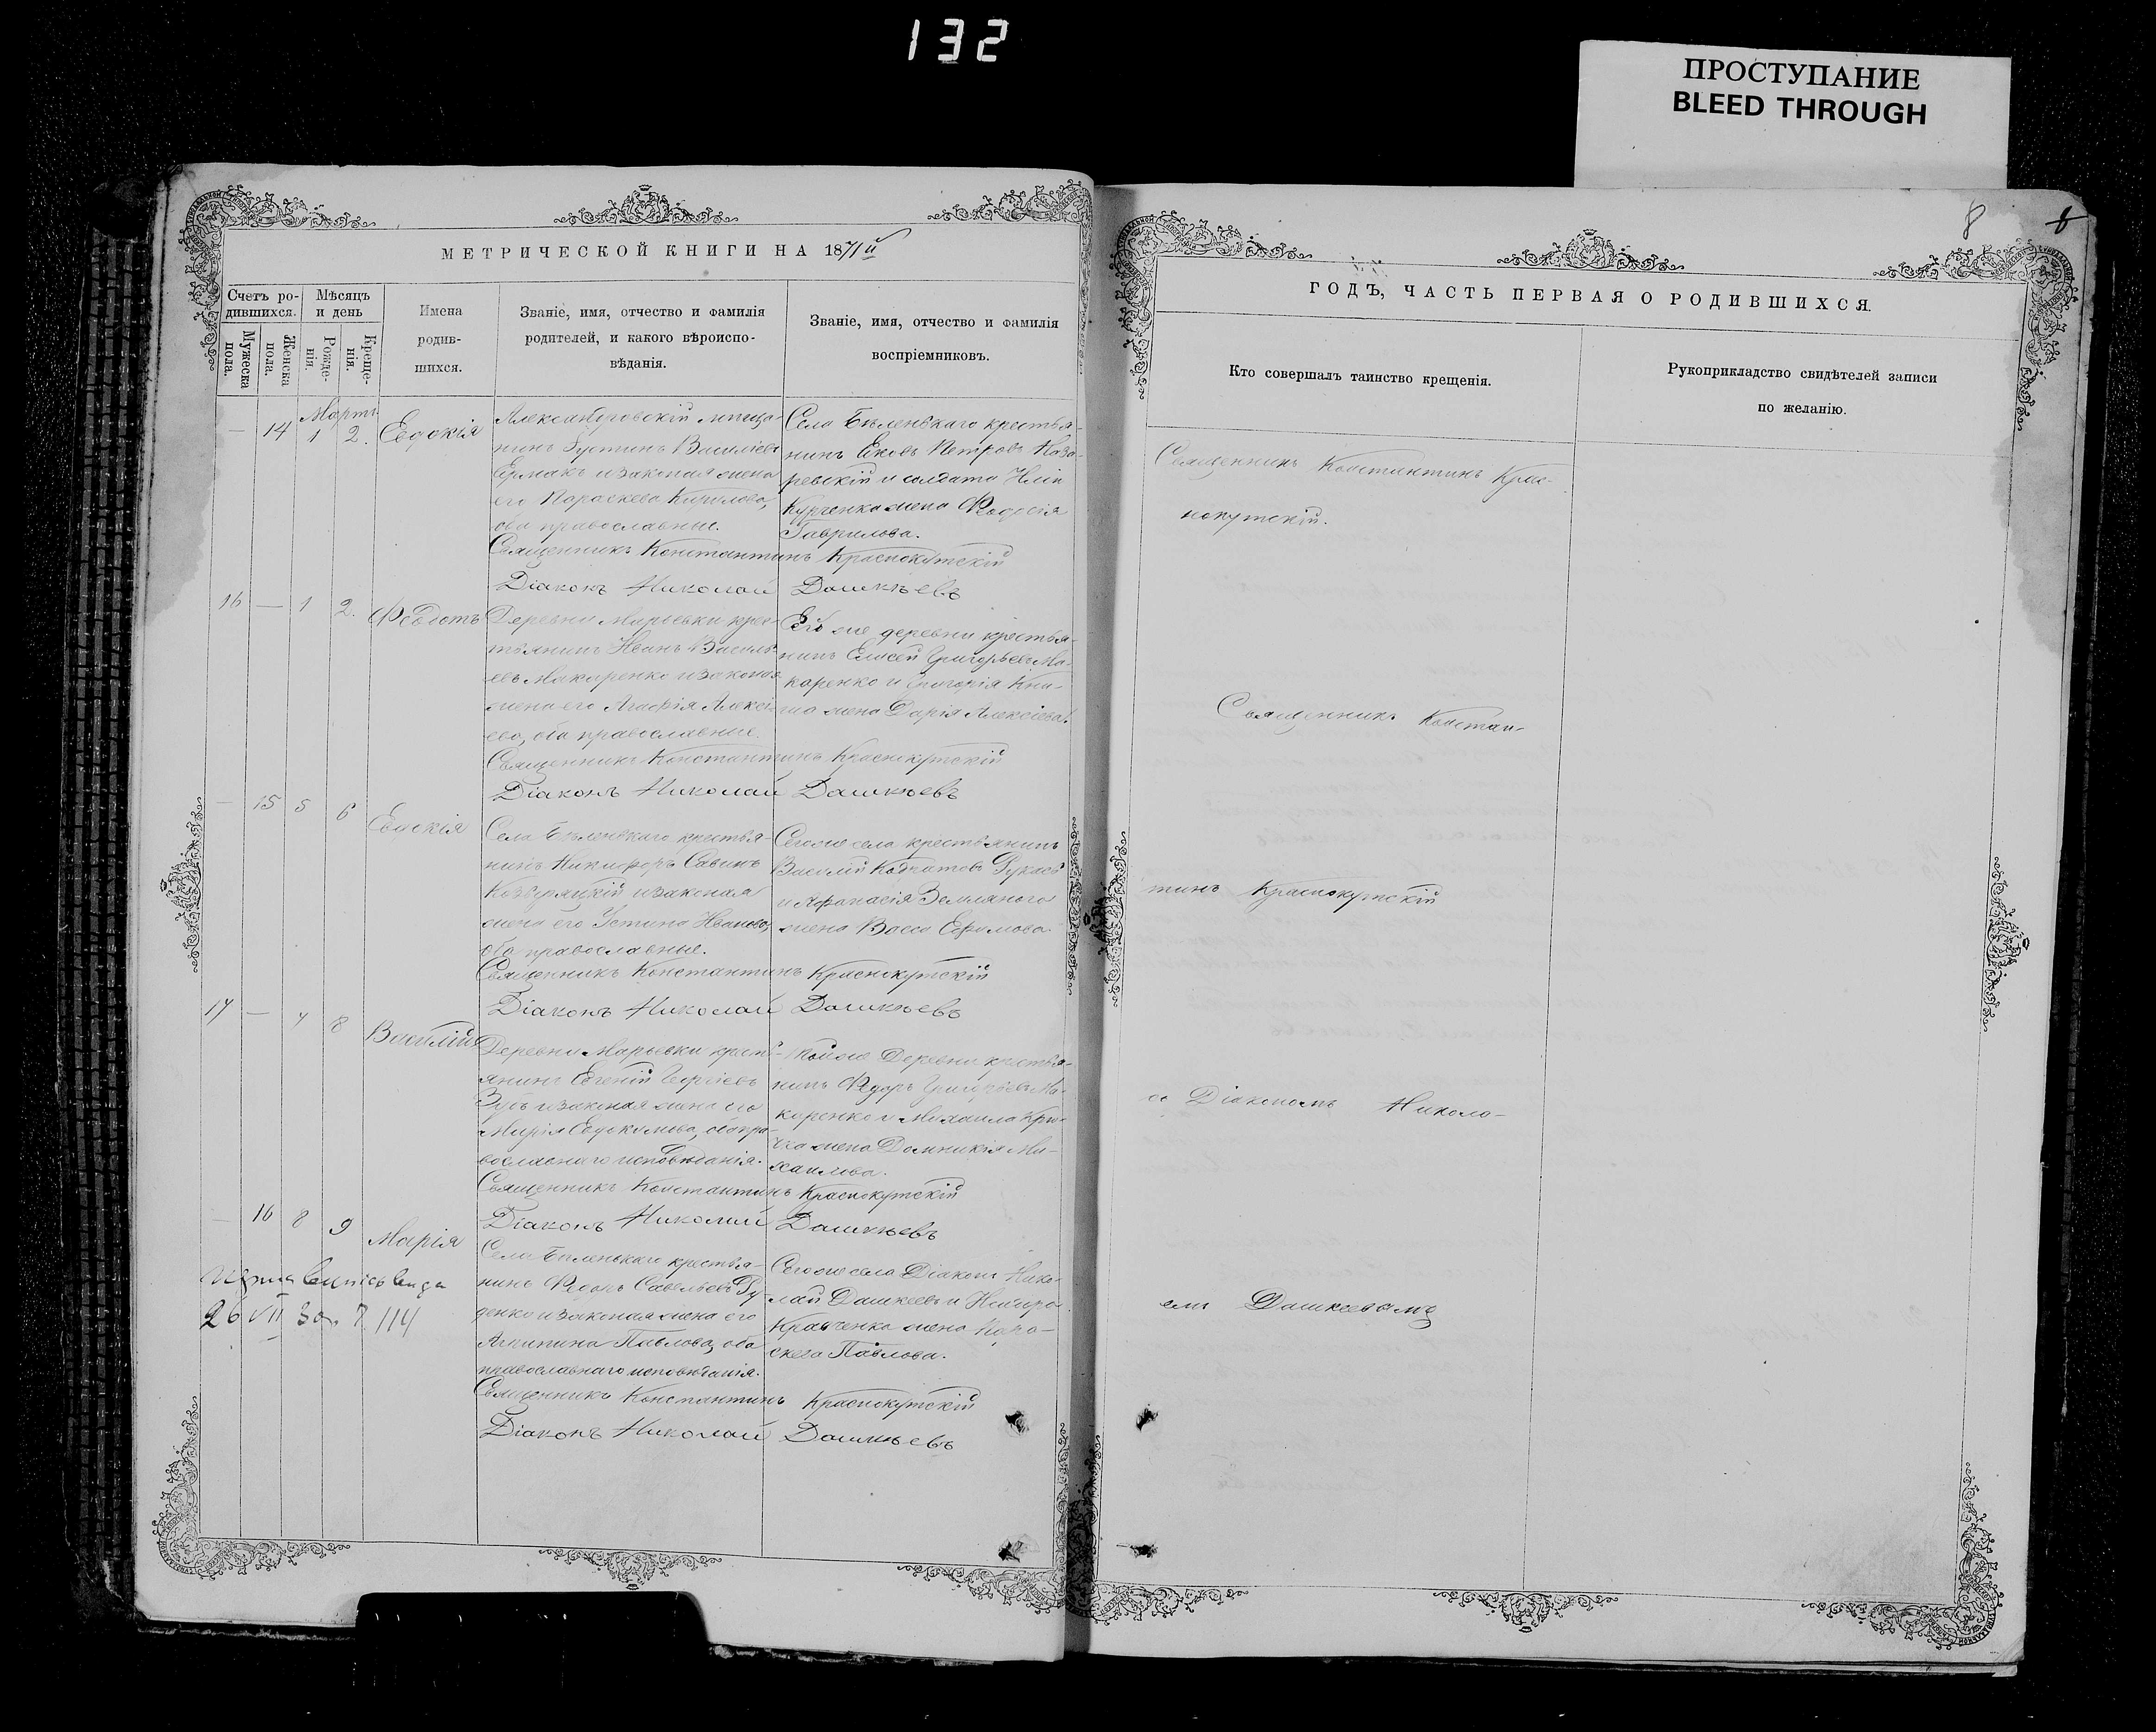 132
ПРОСТУПАНИЕ
BLEED THROUGH
МЕТРИЧЕСКОЙ КНИГИ НА 1871й
Счетъ ро-
дившихся.
Мужеска пола.
Женска пола.
Мѣсяцъ
и день
Рожде-
нія.
Креще-
нія.
Имена
родив-
шихся.
Званіе, имя, отчество и фамилія
родителей, и какого вѣроиспо-
вѣданія.
Званіе, имя, отчество и фамилія
воспріемниковъ.
Мартъ
— 14 1 2. Евдокія
Александровскій мѣща-
нинъ Васильевъ
Ермакъ и законная жена
его Параскева Кирилова,
оба православные.
Села Бѣленькаго крестья-
нинъ Яковъ Петровъ Наза-
ревскій и солдата
жена Феодосія
Гаврилова.
Священникъ Константинъ Краснокутскій
Діаконъ Николай Дашкѣевъ
16 — 1 2. Феодотъ
Деревни Марьевки крес-
тьянинъ Иванъ Василь-
евъ Макаренко и законая
жена его Агафія Алексѣ-
ева, оба православные.
Той же деревни крестья-
нинъ Елисей Григорьевъ Ма-
каренко и Григорія
жена Дарія Алексіева.
Священникъ Константинъ Краснокутскій
Діаконъ Николай Дашкѣевъ
— 15 5 6 Евдокія
Села Бѣленькаго крестья-
нинъ Никифоръ Савинъ
и законая
жена его Устина Иванова,
оба православные.
Сегоже села крестьянинъ
Василій
и Афанасія Земляного
жена Васса Ефимова.
Священникъ Константинъ Краснокутскій
Діаконъ Николай Дашкѣевъ
17 — 7 8 Василій
Деревни Марьевки крест-
янинъ Евгеній
Зубъ и законая жена его
Марія Евдокимова, оба пра-
вославнаго исповѣданія.
Тойже Деревни крестья-
нинъ Федоръ Григорьевъ Ма-
каренко и Михаила
жена Домникія Ми-
хаилова.
Священникъ Константинъ Краснокутскій
Діаконъ Николай Дашкѣевъ
— 16 8 9 Марія
Села Бѣленькаго крестья-
нинъ Савельевъ Ру-
денко и законая жена его
Агрипина Павлова, оба
православнаго исповѣданія.
Сегоже села Діаконъ Нико-
лай Дашкеевъ и
Кравченка жена Пара-
скева Павлова.
Священникъ Константинъ Краснокутскій
Діаконъ Николай Дашкѣевъ
26 VII 114
8
ГОДЪ, ЧАСТЬ ПЕРВАЯ О РОДИВШИХСЯ.
Кто совершалъ таинство крещенія.
Рукоприкладство свидѣтелей записи
по желанію.
Священникъ Константинъ Крас-
нокутскій.
Священникъ Констан-
тинъ Краснокутскій
съ Діакономъ Никола-
емъ Дашкеевымъ